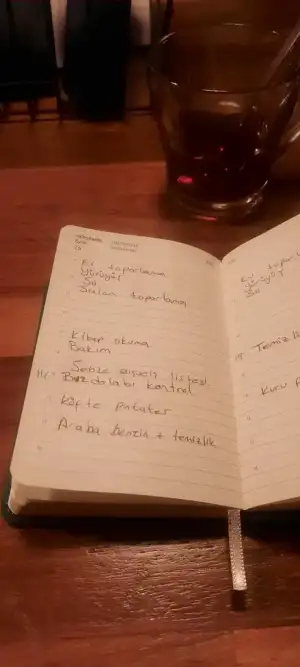 Ev toparlama
Yürüyüş
Su
Salon toparlama
Kitap okuma
Bakım
Sebze alışveriş listesi
Buzdolabı kontrol
Köfte patates
Araba benzin + temizlik
Ev toparl
Yürüyüş
Su
Temizlik
Kuru